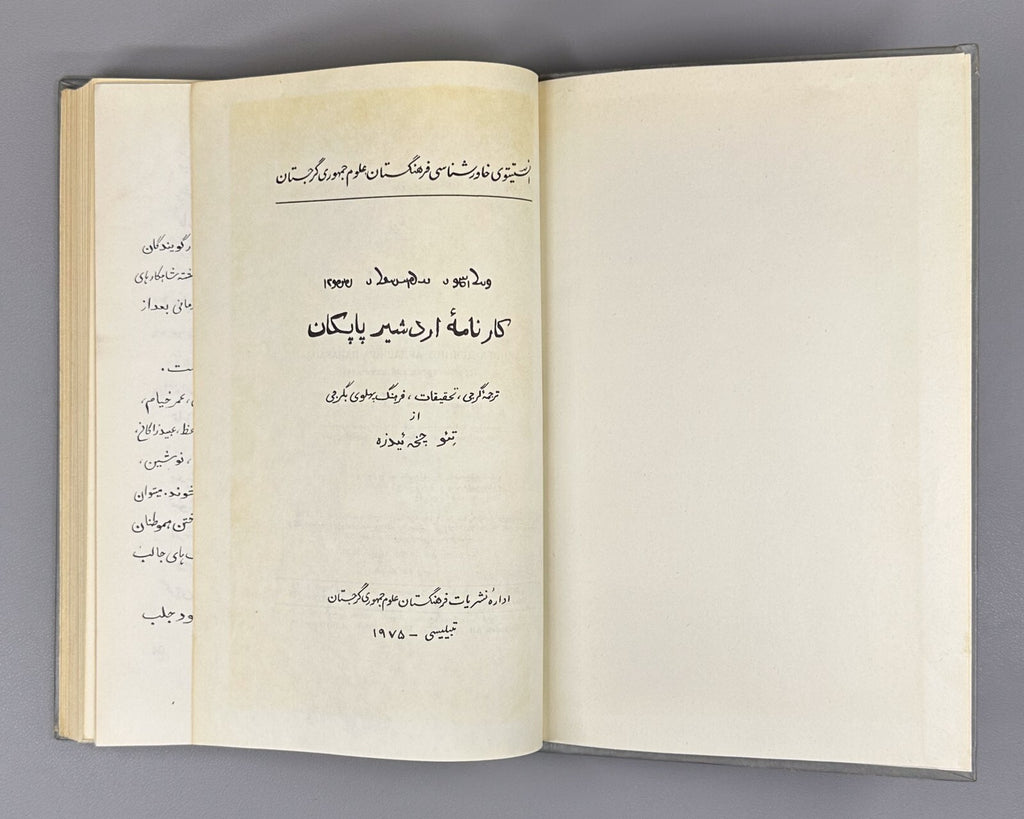 انستیتوی خاورشناسی فرهنگستان علوم جمهوری گرجستان
کارنامهٔ اردشیر پاپکان
ترجمهٔ گرجی، تحقیقات، فرهنگ پهلوی بگرجی
از
تئو چخه ئیدزه
ادارهٔ نشریات فرهنگستان علوم جمهوری گرجستان
تبیلیسی – ۱۹۷۵
گویندگان
شاهکارهای
بعد از
ست.
عمر خیام،
نوشین،
میتوان
هموطنان
های جالب
جلب